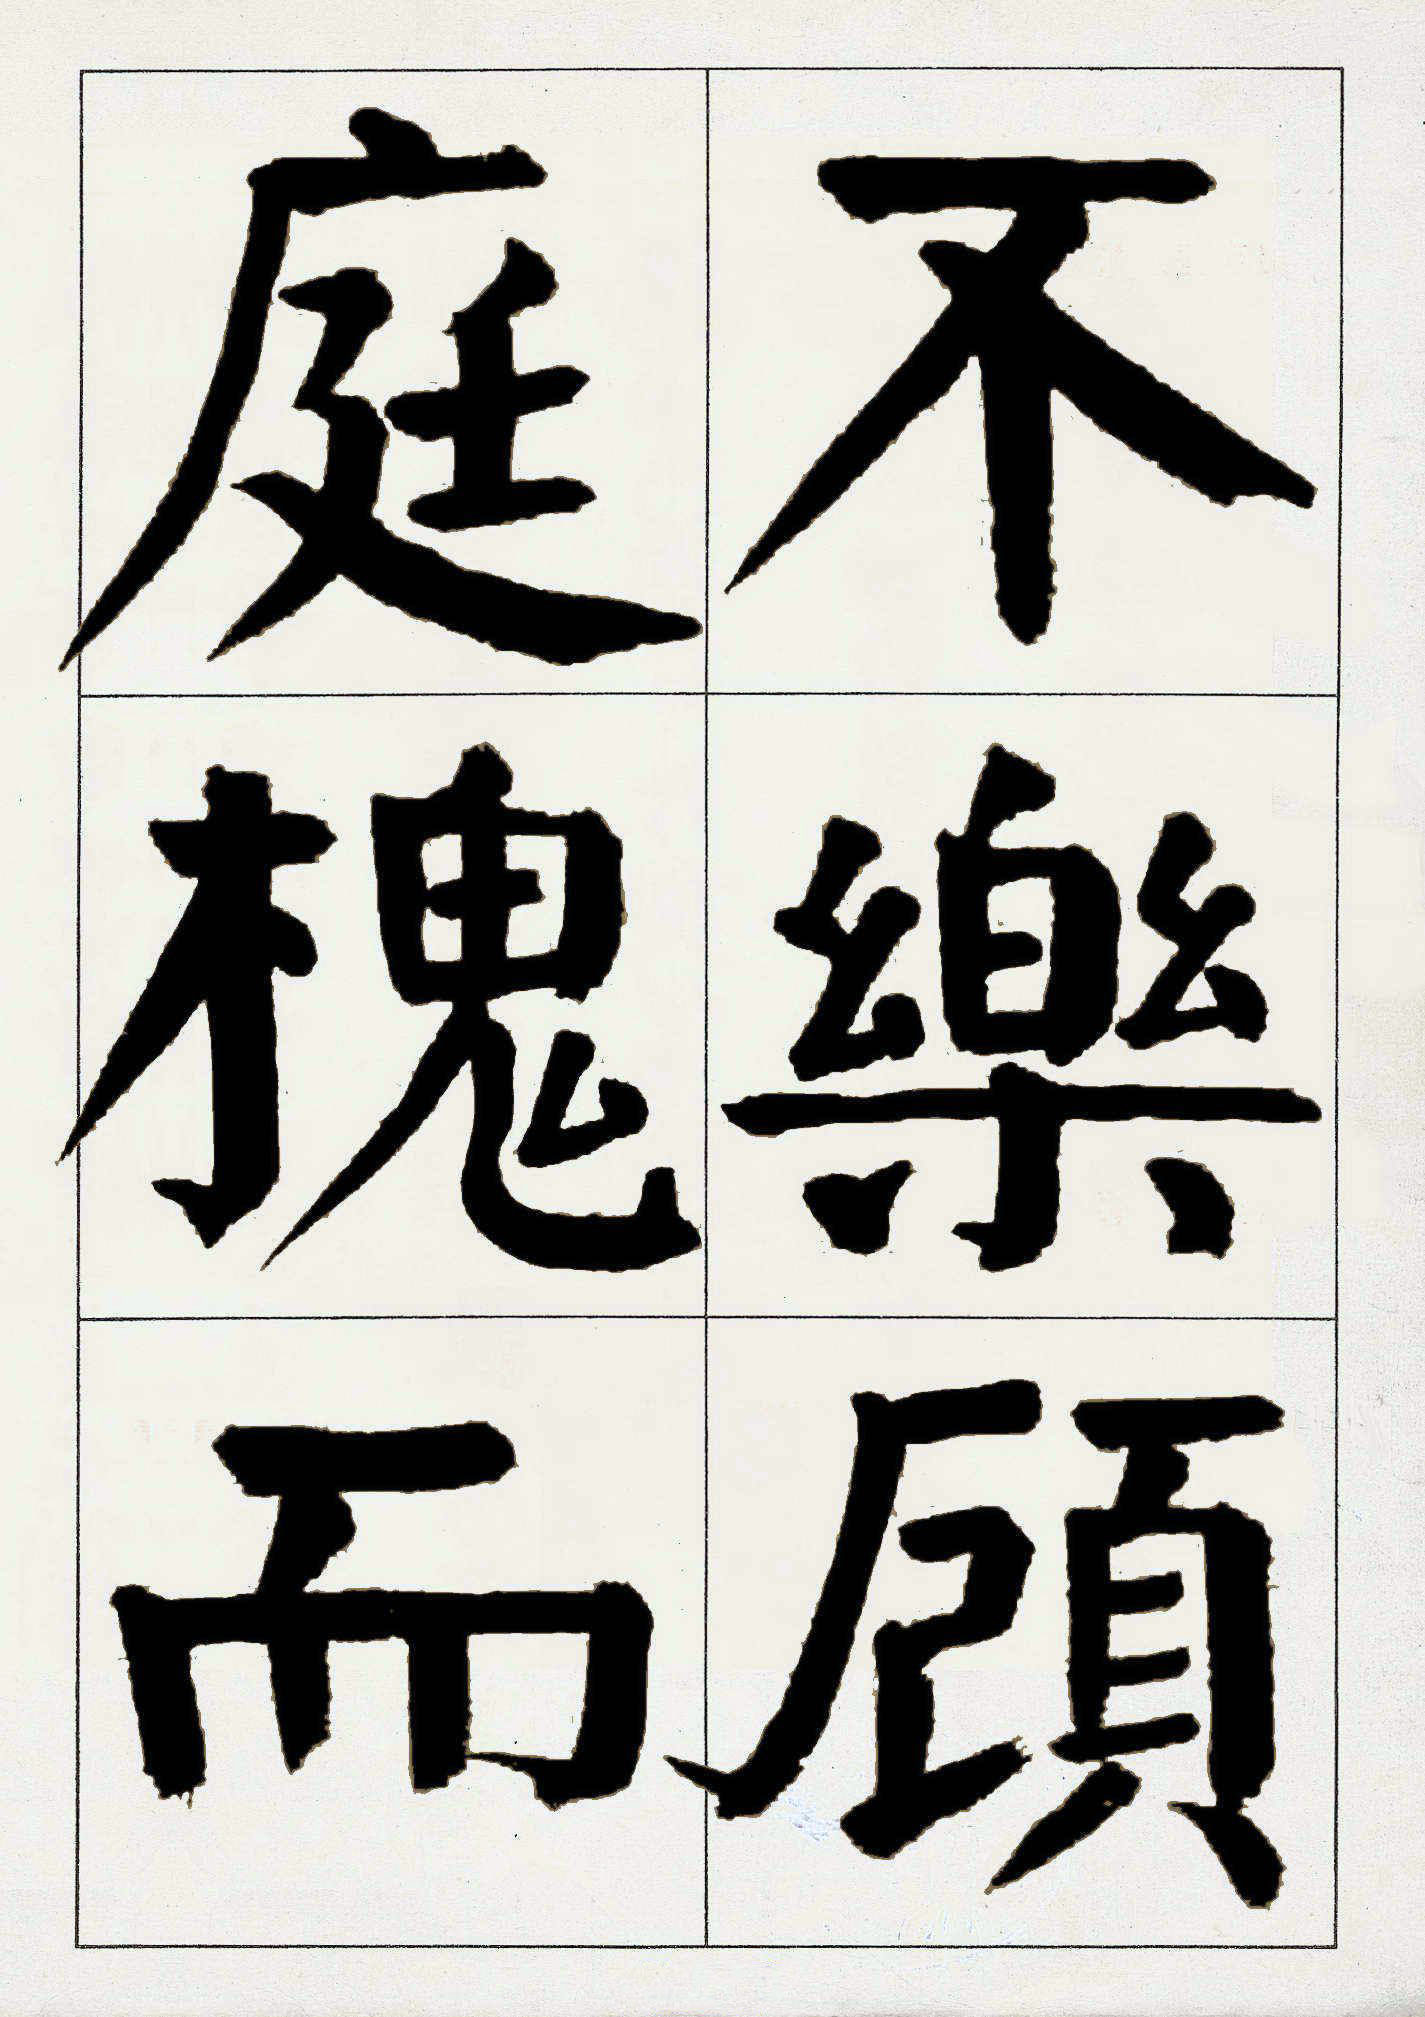 不樂顧
庭槐而